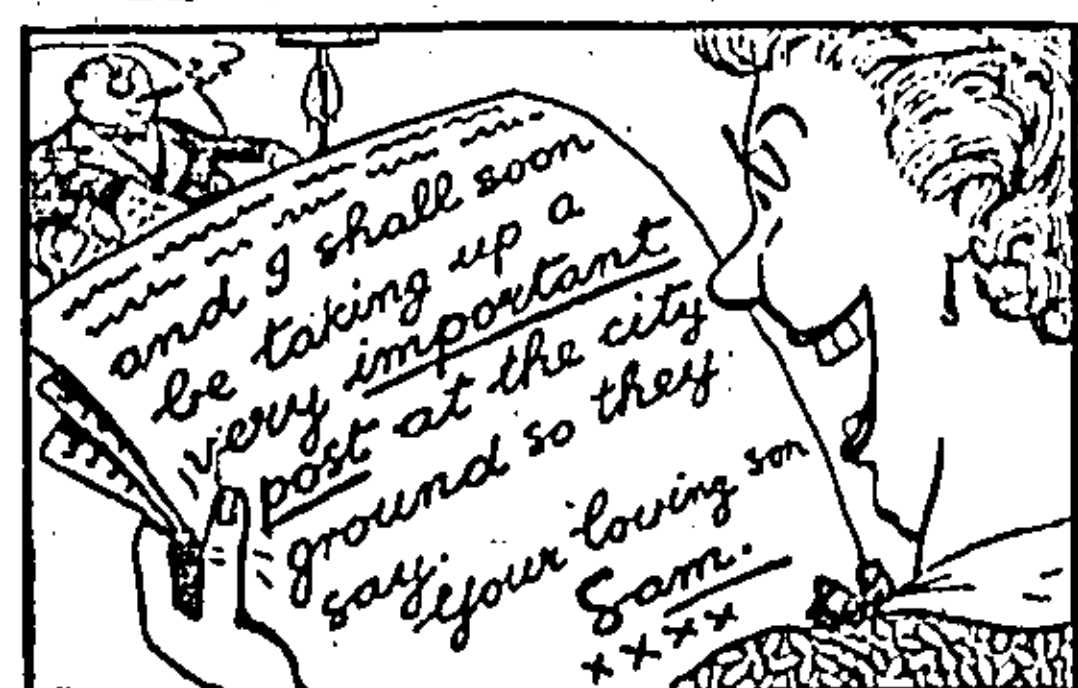 and I shall soon
be taking up a
very important
post at the city
ground so they
say.
Your loving son
Sam.
xxxx